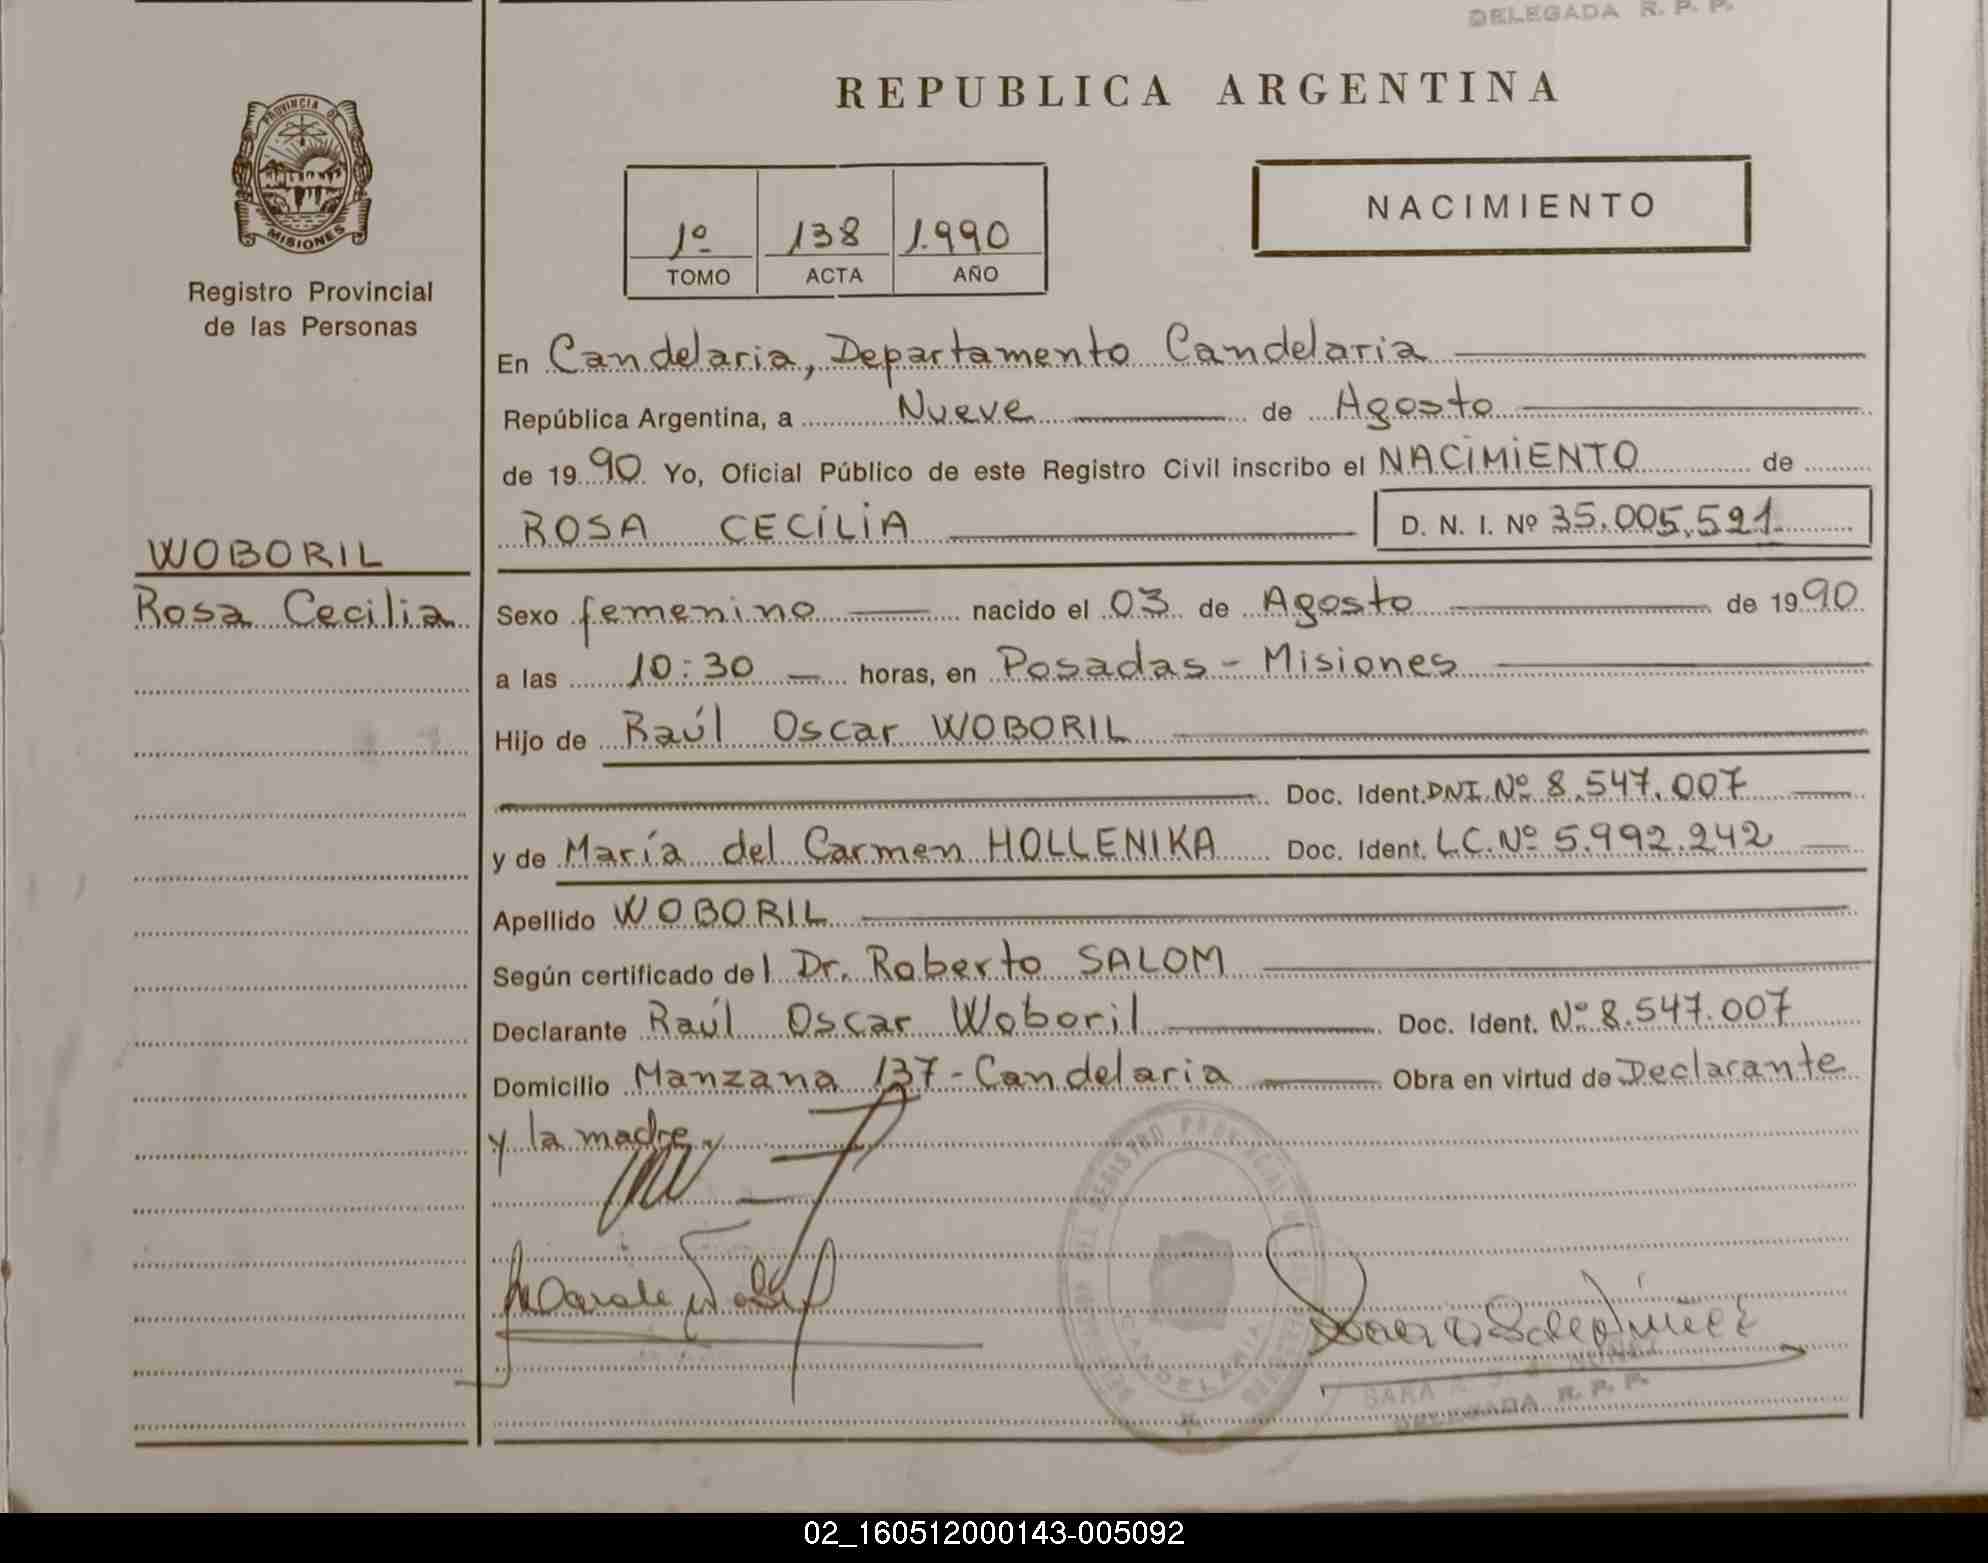 DELEGADA R. P. P.
REPUBLICA ARGENTINA
PROVINCIA DE
MISIONES
Registro Provincial
de las Personas
1º 138 1.990
TOMO ACTA AÑO
NACIMIENTO
En Candelaria, Departamento Candelaria
República Argentina, a Nueve de Agosto
de 1990 Yo, Oficial Público de este Registro Civil inscribo el NACIMIENTO de
ROSA CECILIA D. N. I. Nº 35.005.521
WOBORIL
Rosa Cecilia
Sexo femenino nacido el 03 de Agosto de 1990
a las 10:30 horas, en Posadas - Misiones
Hijo de Raúl Oscar WOBORIL
Doc. Ident. DNI. Nº 8.547.007
y de María del Carmen HOLLENIKA Doc. Ident. L.C. Nº 5.992.242
Apellido WOBORIL
Según certificado del Dr. Roberto SALOM
Declarante Raúl Oscar Woboril Doc. Ident. Nº 8.547.007
Domicilio Manzana 137 - Candelaria Obra en virtud de Declarante
y la madre
DEL REGISTRO PROVINCIAL
CANDELARIA
SARA
DELEGADA R. P. P.
02_160512000143-005092